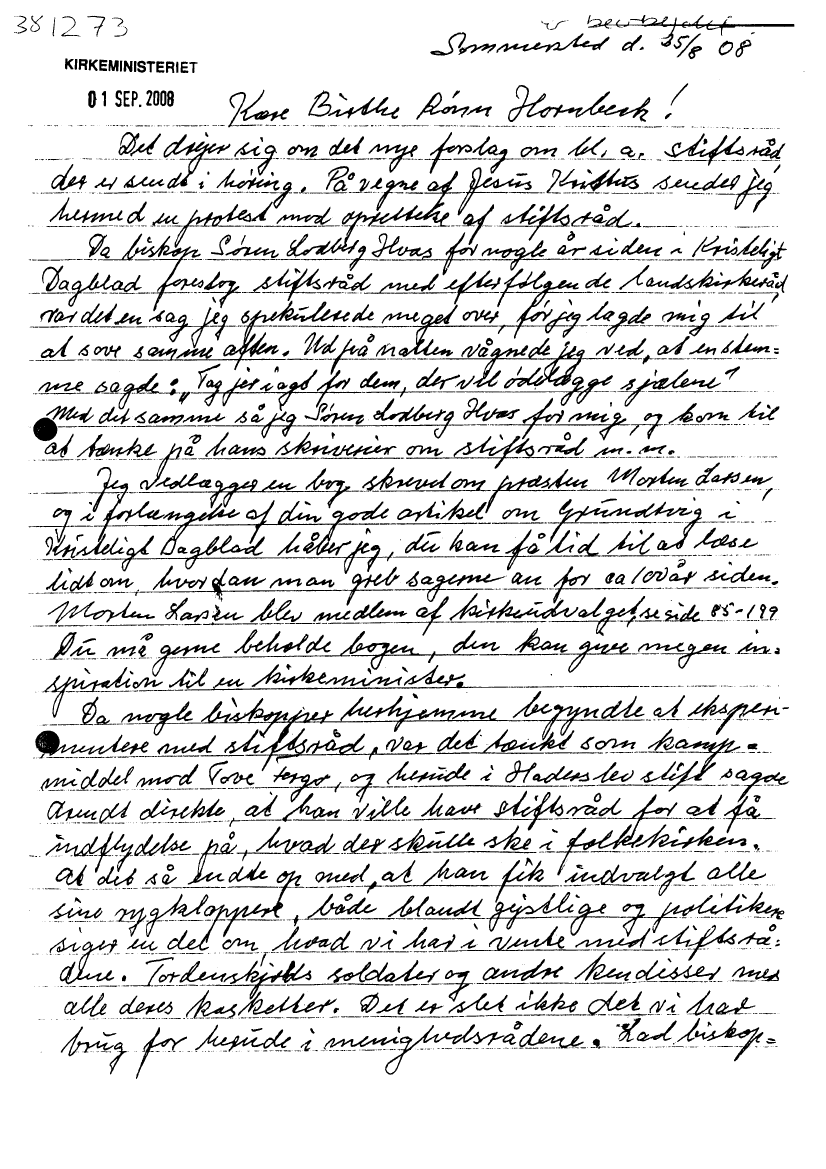 381273
Sommersted d. 25/8 08
KIRKEMINISTERIET
01 SEP. 2008
Kære Birthe Rønn Hornbech!
Det drejer sig om det nye forslag om bl. a. stiftsråd,
der er sendt i høring. På vegne af Jesus Kristus sender jeg
hermed en protest mod oprettelse af stiftsråd.
Da biskop Søren Lodberg Hvas for nogle år siden i Kristeligt
Dagblad foreslog stiftsråd med efterfølgende landskirkeråd,
var det en sag jeg spekulerede meget over, før jeg lagde mig til
at sove samme aften. Ud på natten vågnede jeg ved, at en stem=
me sagde: "Tag jer i agt for dem, der vil ødelægge sjælene"
Med det samme så jeg Søren Lodberg Hvas for mig, og kom til
at tænke på hans skriverier om stiftsråd m.m.
Jeg vedlægger en bog skrevet om præsten Morten Larsen,
og i forlængelse af din gode artikel om Grundtvig i
Kristeligt Dagblad håber jeg, du kan få tid til at læse
lidt om, hvordan man greb sagerne an for ca 100 år siden.
Morten Larsen blev medlem af kirkeudvalget, se side 85-199
Du må gerne beholde bogen, den kan give megen in=
spiration til en kirkeminister.
Da nogle biskopper herhjemme begyndte at eksperi-
mentere med stiftsråd, var det tænkt som kamp=
middel mod Tove Fergo, og herude i Haderslev stift sagde
Arendt direkte, at han ville have stiftsråd for at få
indflydelse på, hvad der skulle ske i folkekirken.
At det så endte op med, at han fik indvalgt alle
sine rygklappere, både blandt gejstlige og politikere
siger en del om, hvad vi har i vente med stiftsrå=
dene. Tordenskjolds soldater og andre kendisser med
alle deres kasketter. Det er slet ikke det vi har
brug for herude i menighedsrådene. Lad biskop=